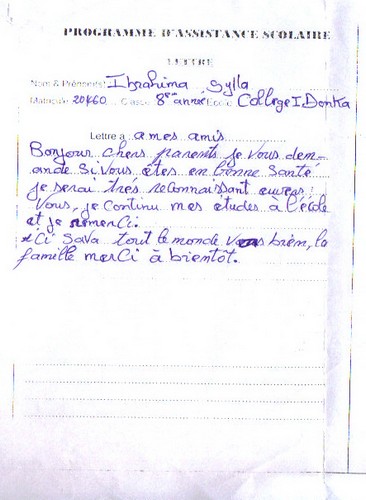 PROGRAMME D'ASSISTANCE SCOLAIRE
LETTRE
Nom & Prénoms: Ibrahima Sylla
Matricule 20460 Classe 8em année Ecole College I Donka
Lettre à ames amis
Bonjour chers parents je vous dem-
ande si vous êtes en bonne santé
je serai très reconnaissant envers
Vous, je continu mes études à l'école
et je remerci.
Ci sava tout le monde vas bien, la
famille merci à bientôt.